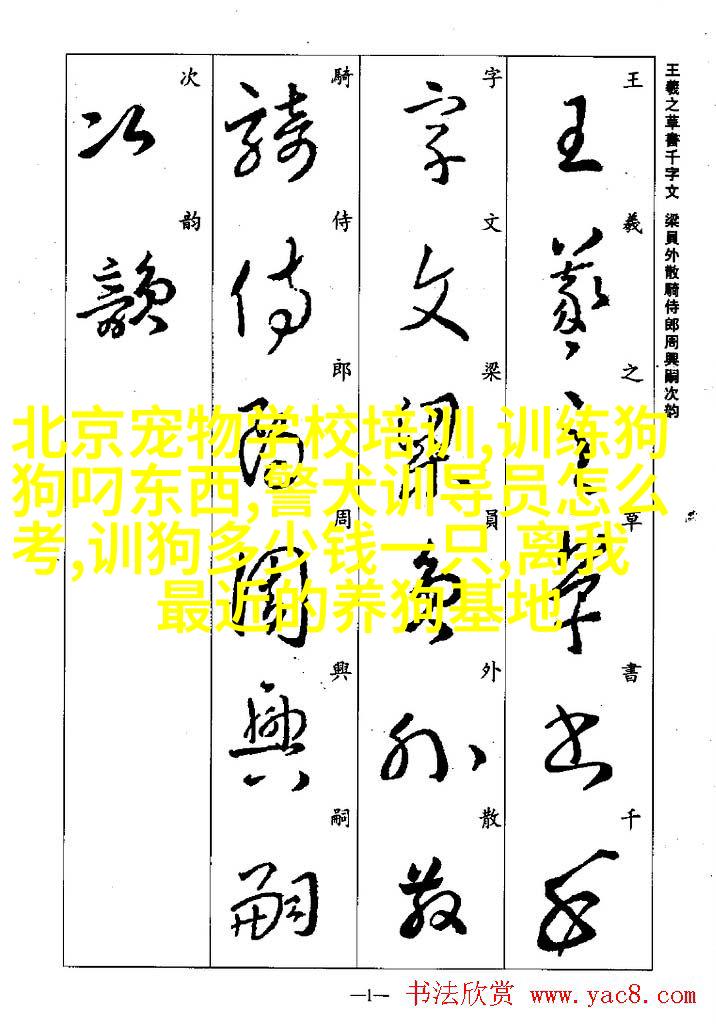 王羲之草書千字文 梁員外散騎侍郎周興嗣次韵
王羲之草書千
王羲之草書千
字文梁員外散
字文梁員外散
騎侍郎周興嗣
騎侍郎周興嗣
次韵
次韻
北京宠物学校培训,训练狗
狗叼东西,警犬训导员怎么
考,训狗多少钱一只,离我
最近的养狗基地
—1—
书法欣赏 www.yac8.com